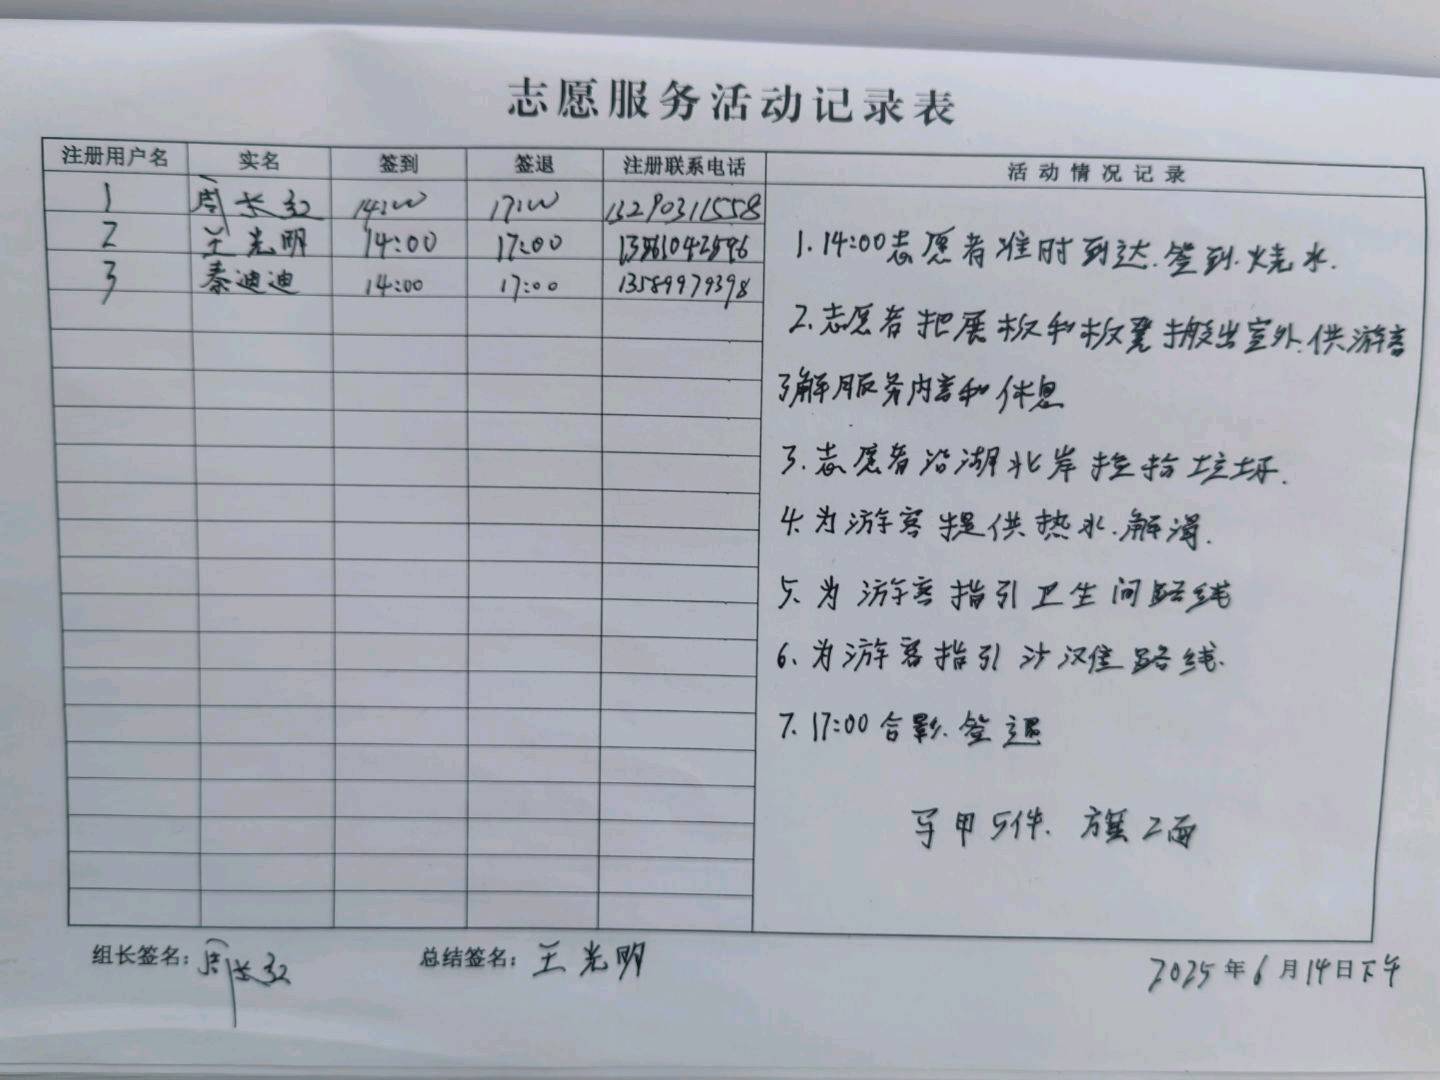 志愿服务活动记录表
注册用户名 实名 签到 签退 注册联系电话 活动情况记录
1 周长红 14:00 17:00 13290311558
2 王光明 14:00 17:00
3 秦迪迪 14:00 17:00 13589979398
1.14:00志愿者准时到达.签到.烧水.
2.志愿者把展板和板凳搬出室外.供游客
了解服务内容和休息
3.志愿者沿湖北岸捡拾垃圾.
4.为游客提供热水.解渴.
5.为游客指引卫生间路线
6.为游客指引沙汉佳路线.
7.17:00合影.签退
马甲5件.旗2面
组长签名:周长红 总结签名:王光明
2025年6月14日下午